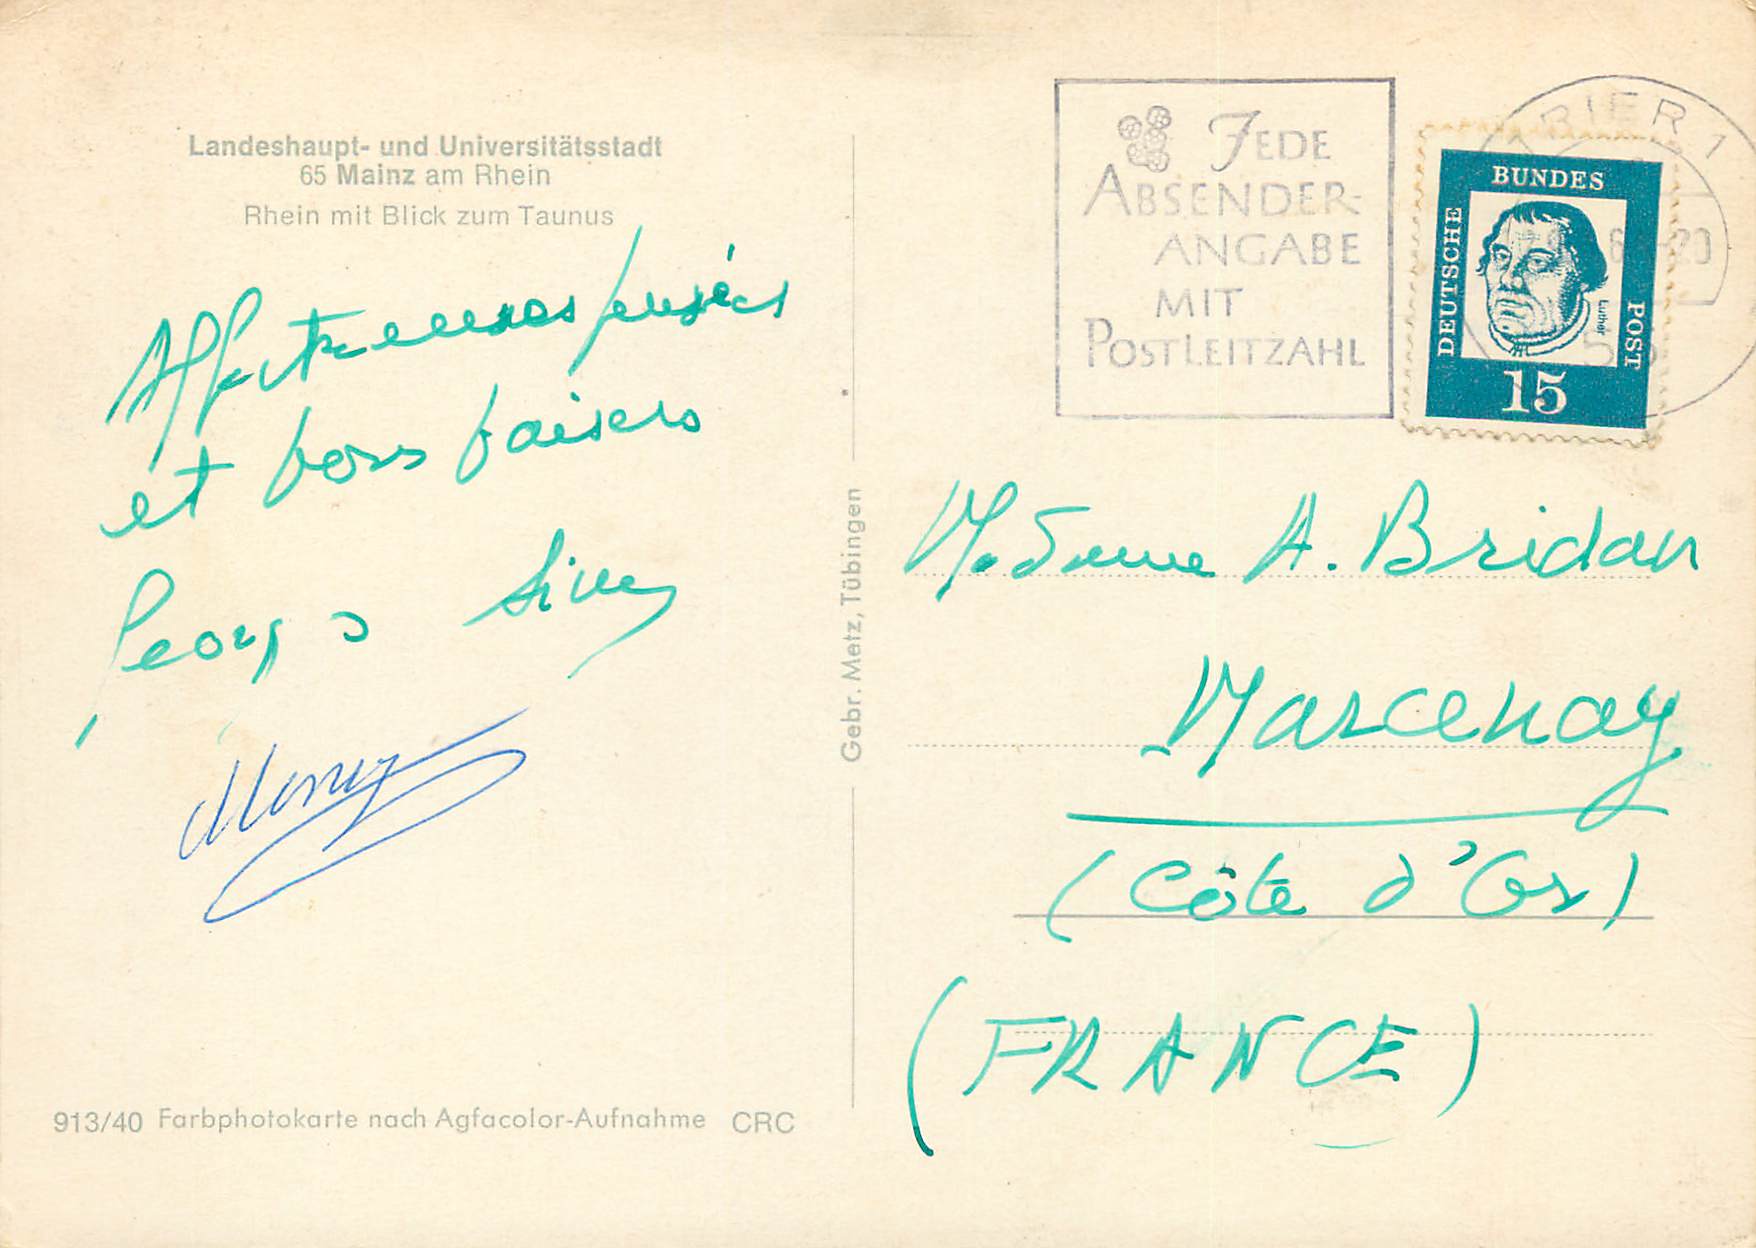 Landeshaupt- und Universitätsstadt
65 Mainz am Rhein
Rhein mit Blick zum Taunus
Affectueuses pensées
et bons baisers
Georges
Gebr. Metz, Tübingen
913/40 Farbphotokarte nach Agfacolor-Aufnahme CRC
JEDE
ABSENDER-
ANGABE
MIT
POSTLEITZAHL
TRIER 1
BUNDES
DEUTSCHE
POST
Luther
15
Madame A. Bridan
Marcenay
(Côte d'Or)
(FRANCE)